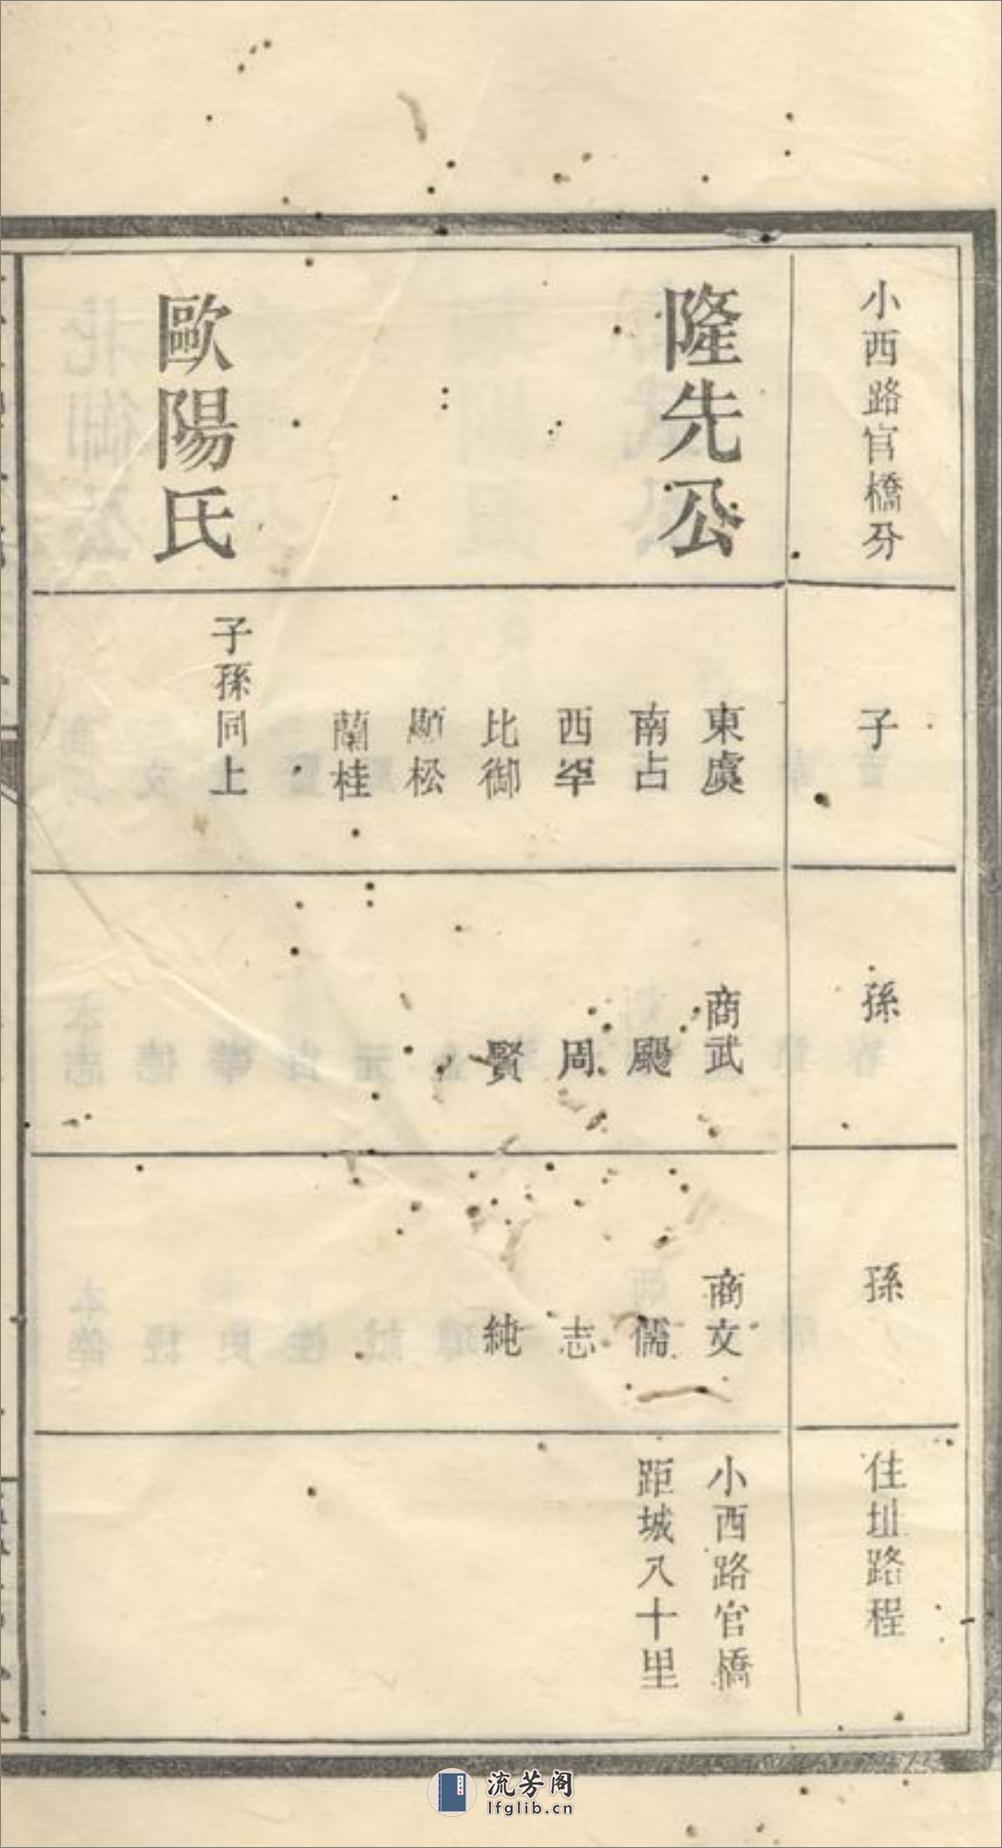 小西路官橋分
子
孫
孫
住址路程
隆先公
東虞
南占
西翠
比御
顯松
蘭桂
商武
颺
周
賢
商文
儒
志
純
小西路官橋
距城八十里
歐陽氏
子孫同上
流芳阁
lfglib.cn